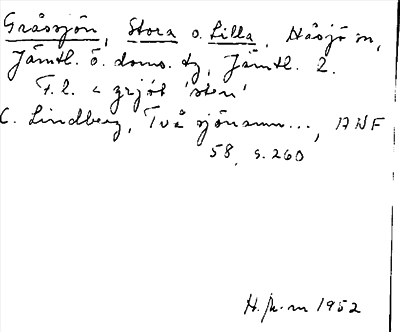 Gråssjön, Stora o. Lilla, Håsjö sn,
Jämtl. ö. doms. tg, Jämtl. l.
F.l. < grjót 'sten'
C. Lindberg, Två sjönamn..., ANF
58, s. 260
1952